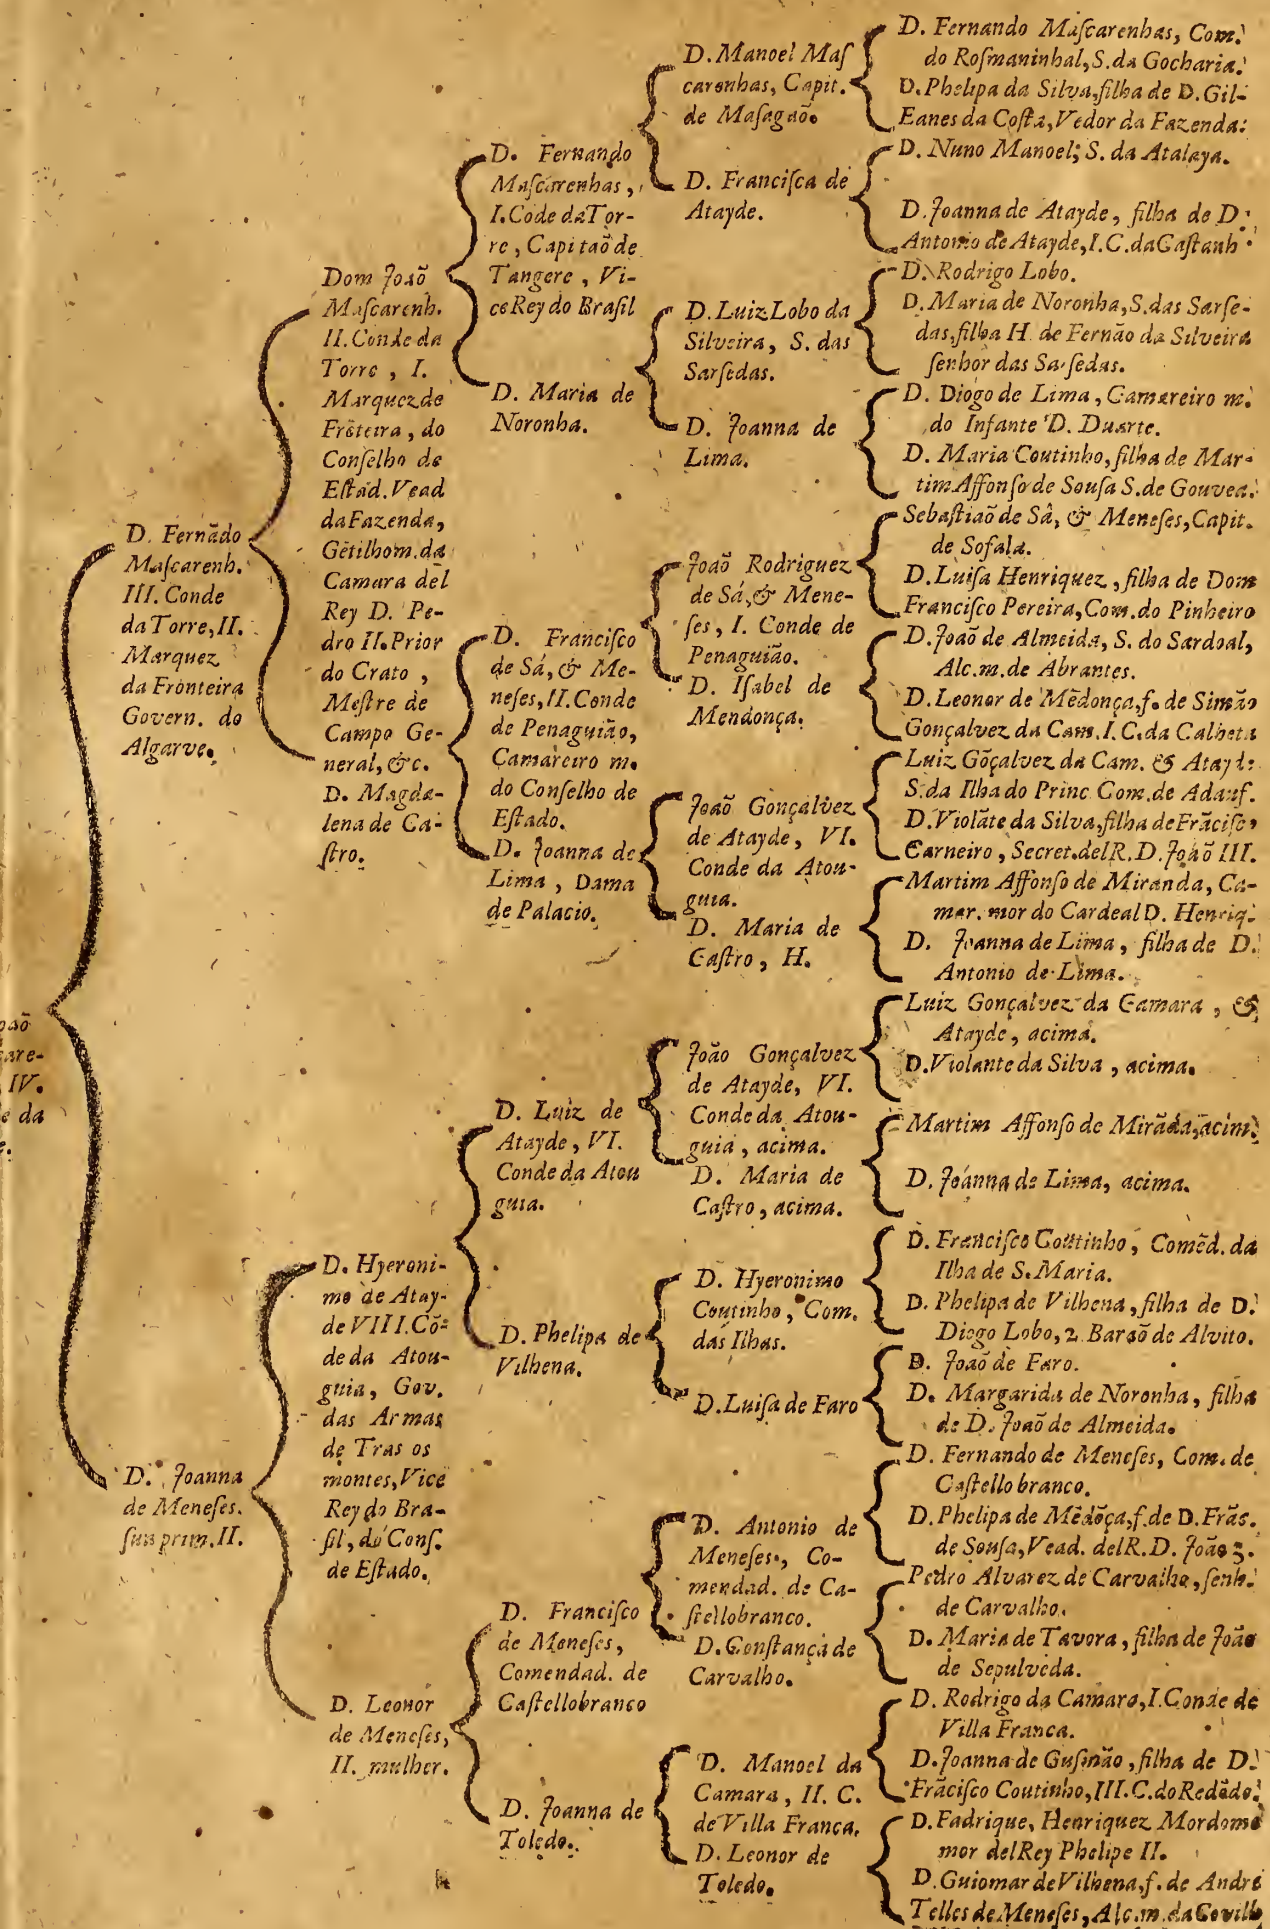 oaõ
care-
IV.
e da
e.
D. Fernãdo
Maſcarenh.
III. Conde
da Torre, II.
Marquez
da Fronteira
Govern. do
Algarve.
D. Joanna
de Meneſes.
ſua prim. II.
Dom Joaõ
Maſcarenh.
II. Conde da
Torre, I.
Marquez de
Frõteira, do
Conſelho de
Eſtad. Vead
da Fazenda,
Gẽtilhom. da
Camara del
Rey D. Pe-
dro II. Prior
do Crato,
Meſtre de
Campo Ge-
neral, &c.
D. Magda-
lena de Ca-
ſtro.
D. Hyeroni-
mo de Atay-
de VIII. Cõ-
de da Atou-
guia, Gov.
das Armas
de Tras os
montes, Vice
Rey do Bra-
ſil, do Conſ.
de Eſtado.
D. Leonor
de Meneſes,
II. mulher.
D. Fernando
Maſcarenhas,
I. Cõde da Tor-
re, Capitaõ de
Tangere, Vi-
ce Rey do Braſil
D. Maria de
Noronha.
D. Franciſco
de Sá, & Me-
neſes, II. Conde
de Penaguião,
Camareiro m.
do Conſelho de
Eſtado.
D. Joanna de
Lima, Dama
de Palacio.
D. Luiz de
Atayde, VI.
Conde da Atou
guia.
D. Phelipa de
Vilhena.
D. Franciſco
de Meneſes,
Comendad. de
Caſtellobranco
D. Joanna de
Toledo.
D. Manoel Maſ
carenhas, Capit.
de Maſagaõ.
D. Franciſca de
Atayde.
D. Luiz Lobo da
Silveira, S. das
Sarſedas.
D. Joanna de
Lima.
Joaõ Rodriguez
de Sá, & Mene-
ſes, I. Conde de
Penaguião.
D. Iſabel de
Mendonça.
Joaõ Gonçalvez
de Atayde, VI.
Conde da Atou-
guia.
D. Maria de
Caſtro, H.
João Gonçalvez
de Atayde, VI.
Conde da Atou-
guia, acima.
D. Maria de
Caſtro, acima.
D. Hyeronimo
Coutinho, Com.
das Ilhas.
D. Luiſa de Faro
D. Antonio de
Meneſes, Co-
mendad. de Ca-
ſtellobranco.
D. Conſtança de
Carvalho.
D. Manoel da
Camara, II. C.
de Villa Franca.
D. Leonor de
Toledo.
D. Fernando Maſcarenhas, Com.
do Roſmaninhal, S. da Gocharia.
D. Phelipa da Silva, filha de D. Gil-
Eanes da Coſta, Vedor da Fazenda.
D. Nuno Manoel, S. da Atalaya.
D. Joanna de Atayde, filha de D.
Antonio de Atayde, I. C. da Caſtanh.
D. Rodrigo Lobo.
D. Maria de Noronha, S. das Sarſe-
das, filha H. de Fernão da Silveira
ſenhor das Sarſedas.
D. Diogo de Lima, Camareiro m.
do Infante D. Duarte.
D. Maria Coutinho, filha de Mar-
tim Affonſo de Souſa S. de Gouvea.
Sebaſtiaõ de Sâ, & Meneſes, Capit.
de Sofala.
D. Luiſa Henriquez, filha de Dom
Franciſco Pereira, Com. do Pinheiro
D. Joaõ de Almeida, S. do Sardoal,
Alc. m. de Abrantes.
D. Leonor de Mẽdonça, f. de Simão
Gonçalvez da Cam. I. C. da Calheta
Luiz Gõçalvez da Cam. & Atayd.
S. da Ilha do Princ. Com. de Adauf.
D. Violãte da Silva, filha de Frãciſco
Carneiro, Secret. del R. D. Joaõ III.
Martim Affonſo de Miranda, Ca-
mar. mor do Cardeal D. Henriq.
D. Joanna de Lima, filha de D.
Antonio de Lima.
Luiz Gonçalvez da Camara, &
Atayde, acima.
D. Violante da Silva, acima.
Martim Affonſo de Mirãda, acim.
D. Joánna de Lima, acima.
D. Franciſco Coutinho, Comẽd. da
Ilha de S. Maria.
D. Phelipa de Vilhena, filha de D.
Diogo Lobo, 2. Baraõ de Alvito.
D. Joaõ de Faro.
D. Margarida de Noronha, filha
de D. Joaõ de Almeida.
D. Fernando de Meneſes, Com. de
Caſtellobranco.
D. Phelipa de Mẽdõça, f. de D. Frãc.
de Souſa, Vead. del R. D. Joaõ 3.
Pedro Alvarez de Carvalho, ſenh.
de Carvalho.
D. Maria de Tavora, filha de João
de Sepulveda.
D. Rodrigo da Camara, I. Conde de
Villa Franca.
D. Joanna de Guſmão, filha de D.
Frãciſco Coutinho, III. C. do Redõdo.
D. Fadrique, Henriquez Mordomo
mor del Rey Phelipe II.
D. Guiomar de Vilhena, f. de André
Telles de Meneſes, Alc. m. da Covilh